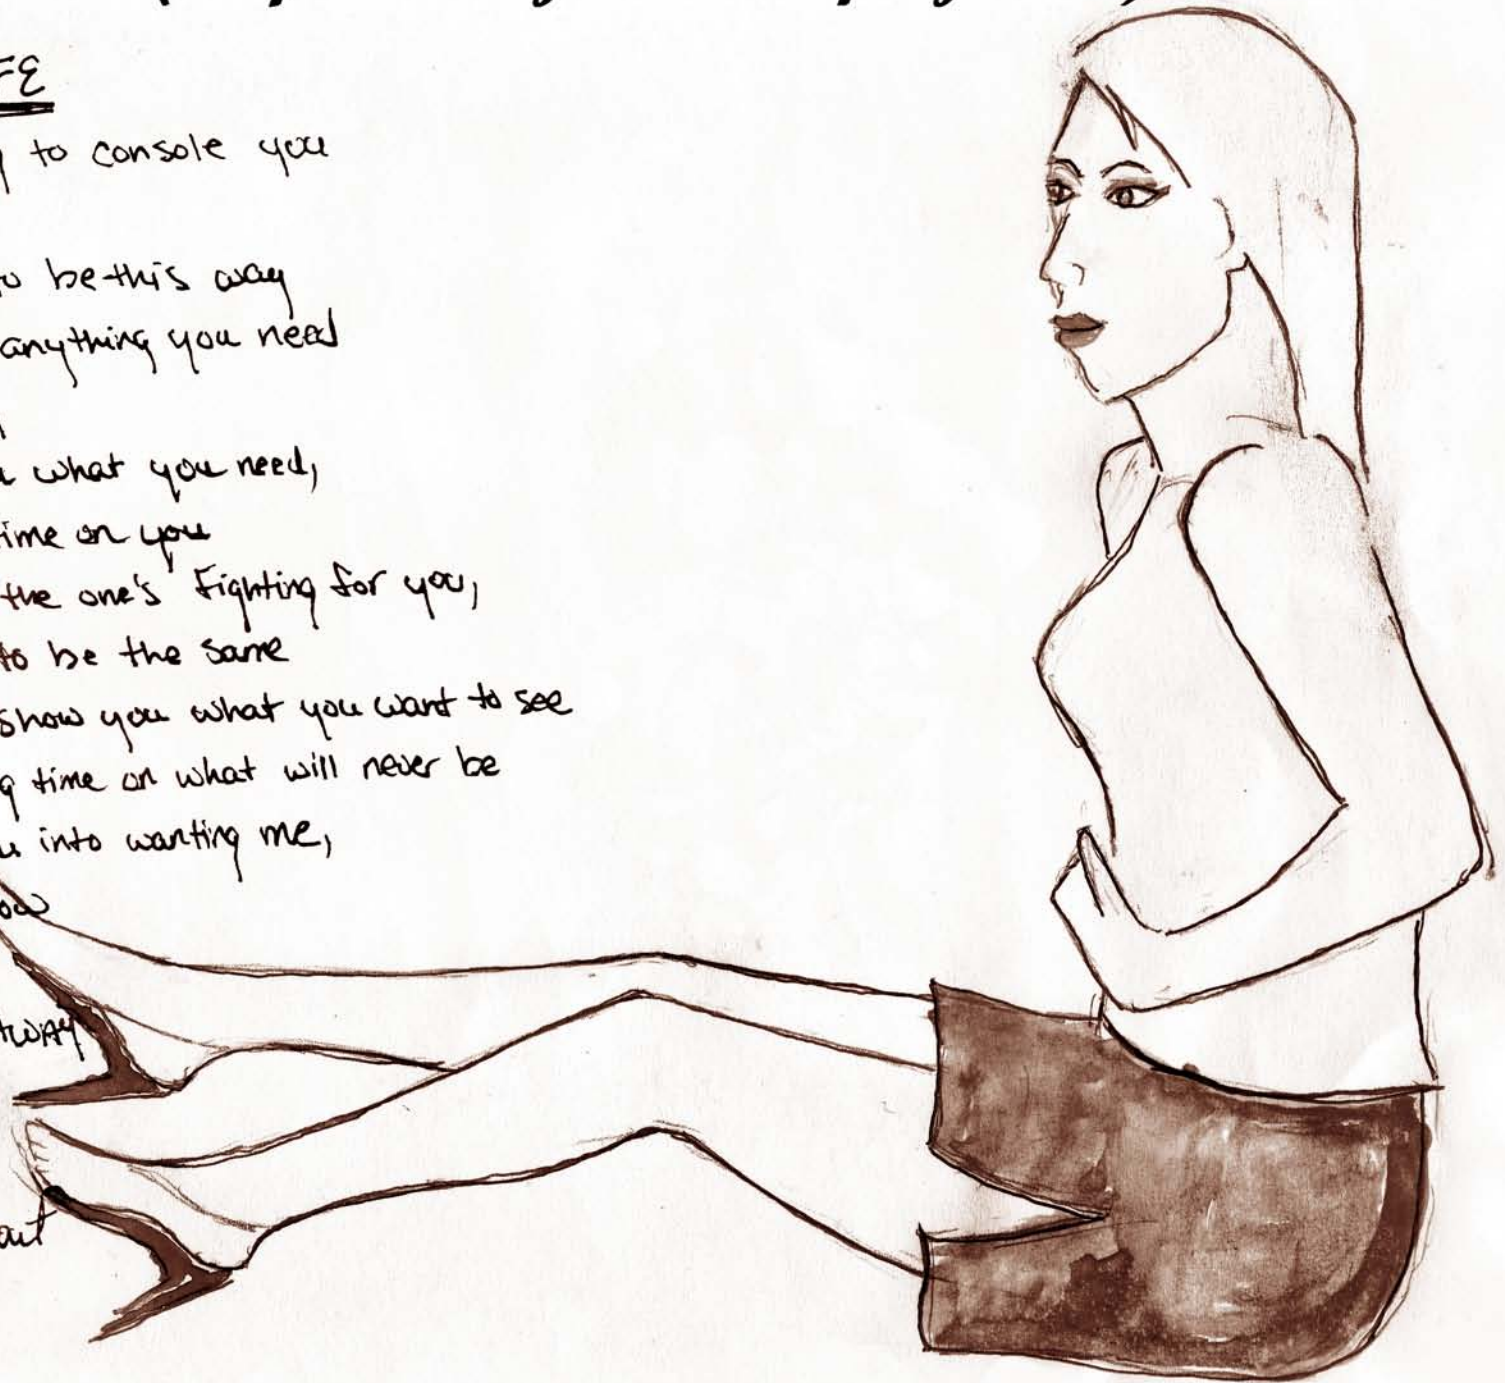 FE
to console you
be this way
anything you need
what you need,
time on you
the one's Fighting for you,
to be the same
show you what you want to see
time on what will never be
into wanting me,